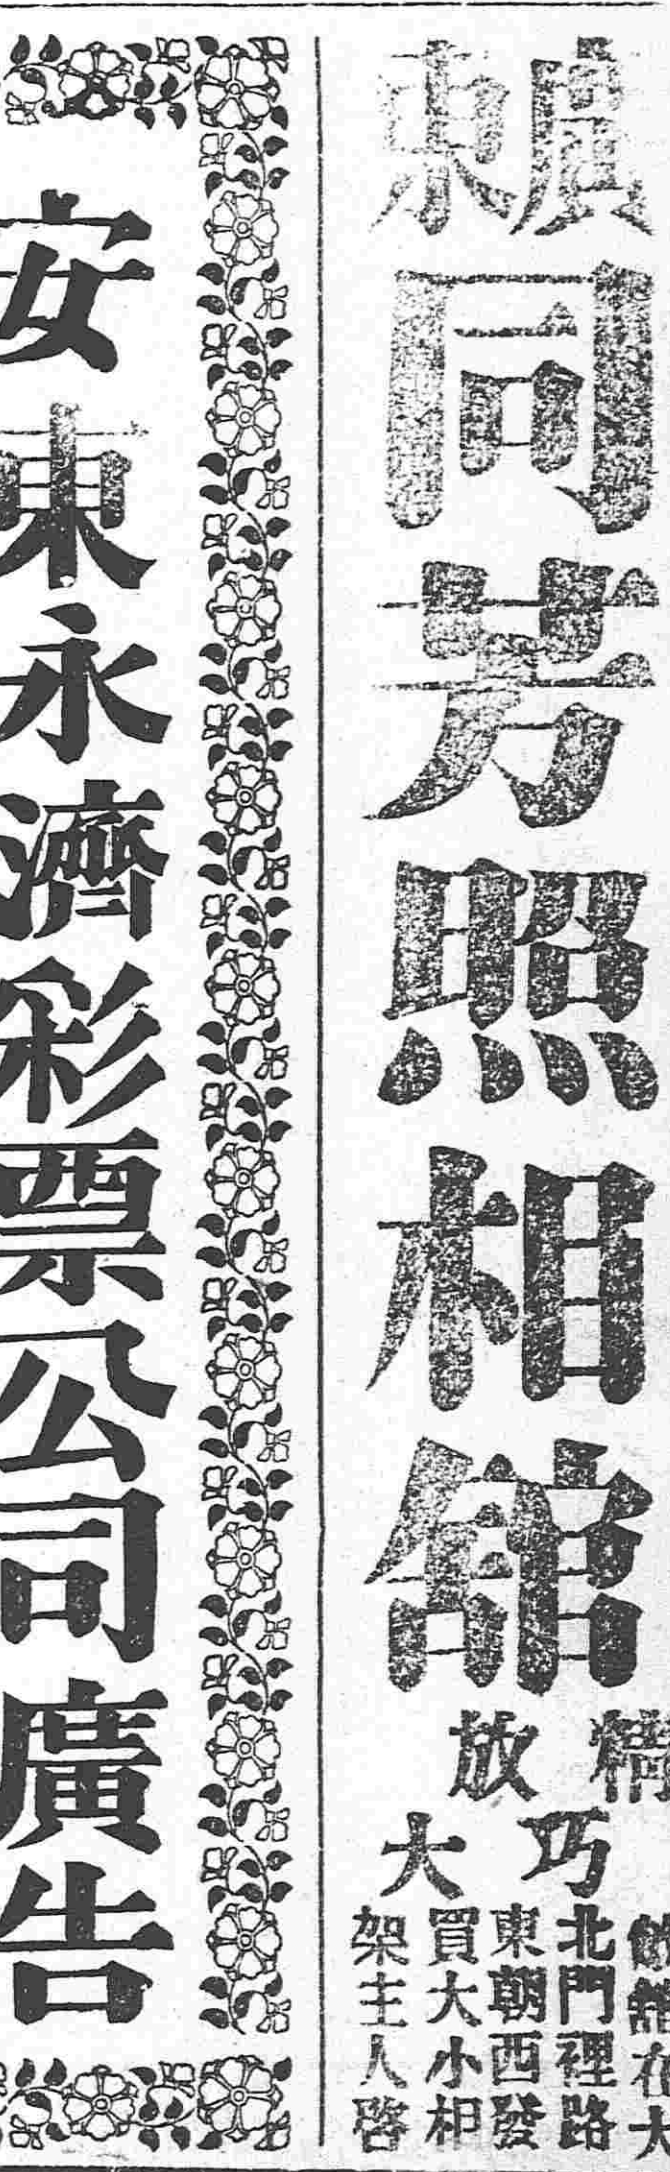 廣東
同芳照相舘
精巧
放大
敝舘在大
北門裡路
東朝西發
買大小相
架主人啓
安東永濟彩票公司廣告